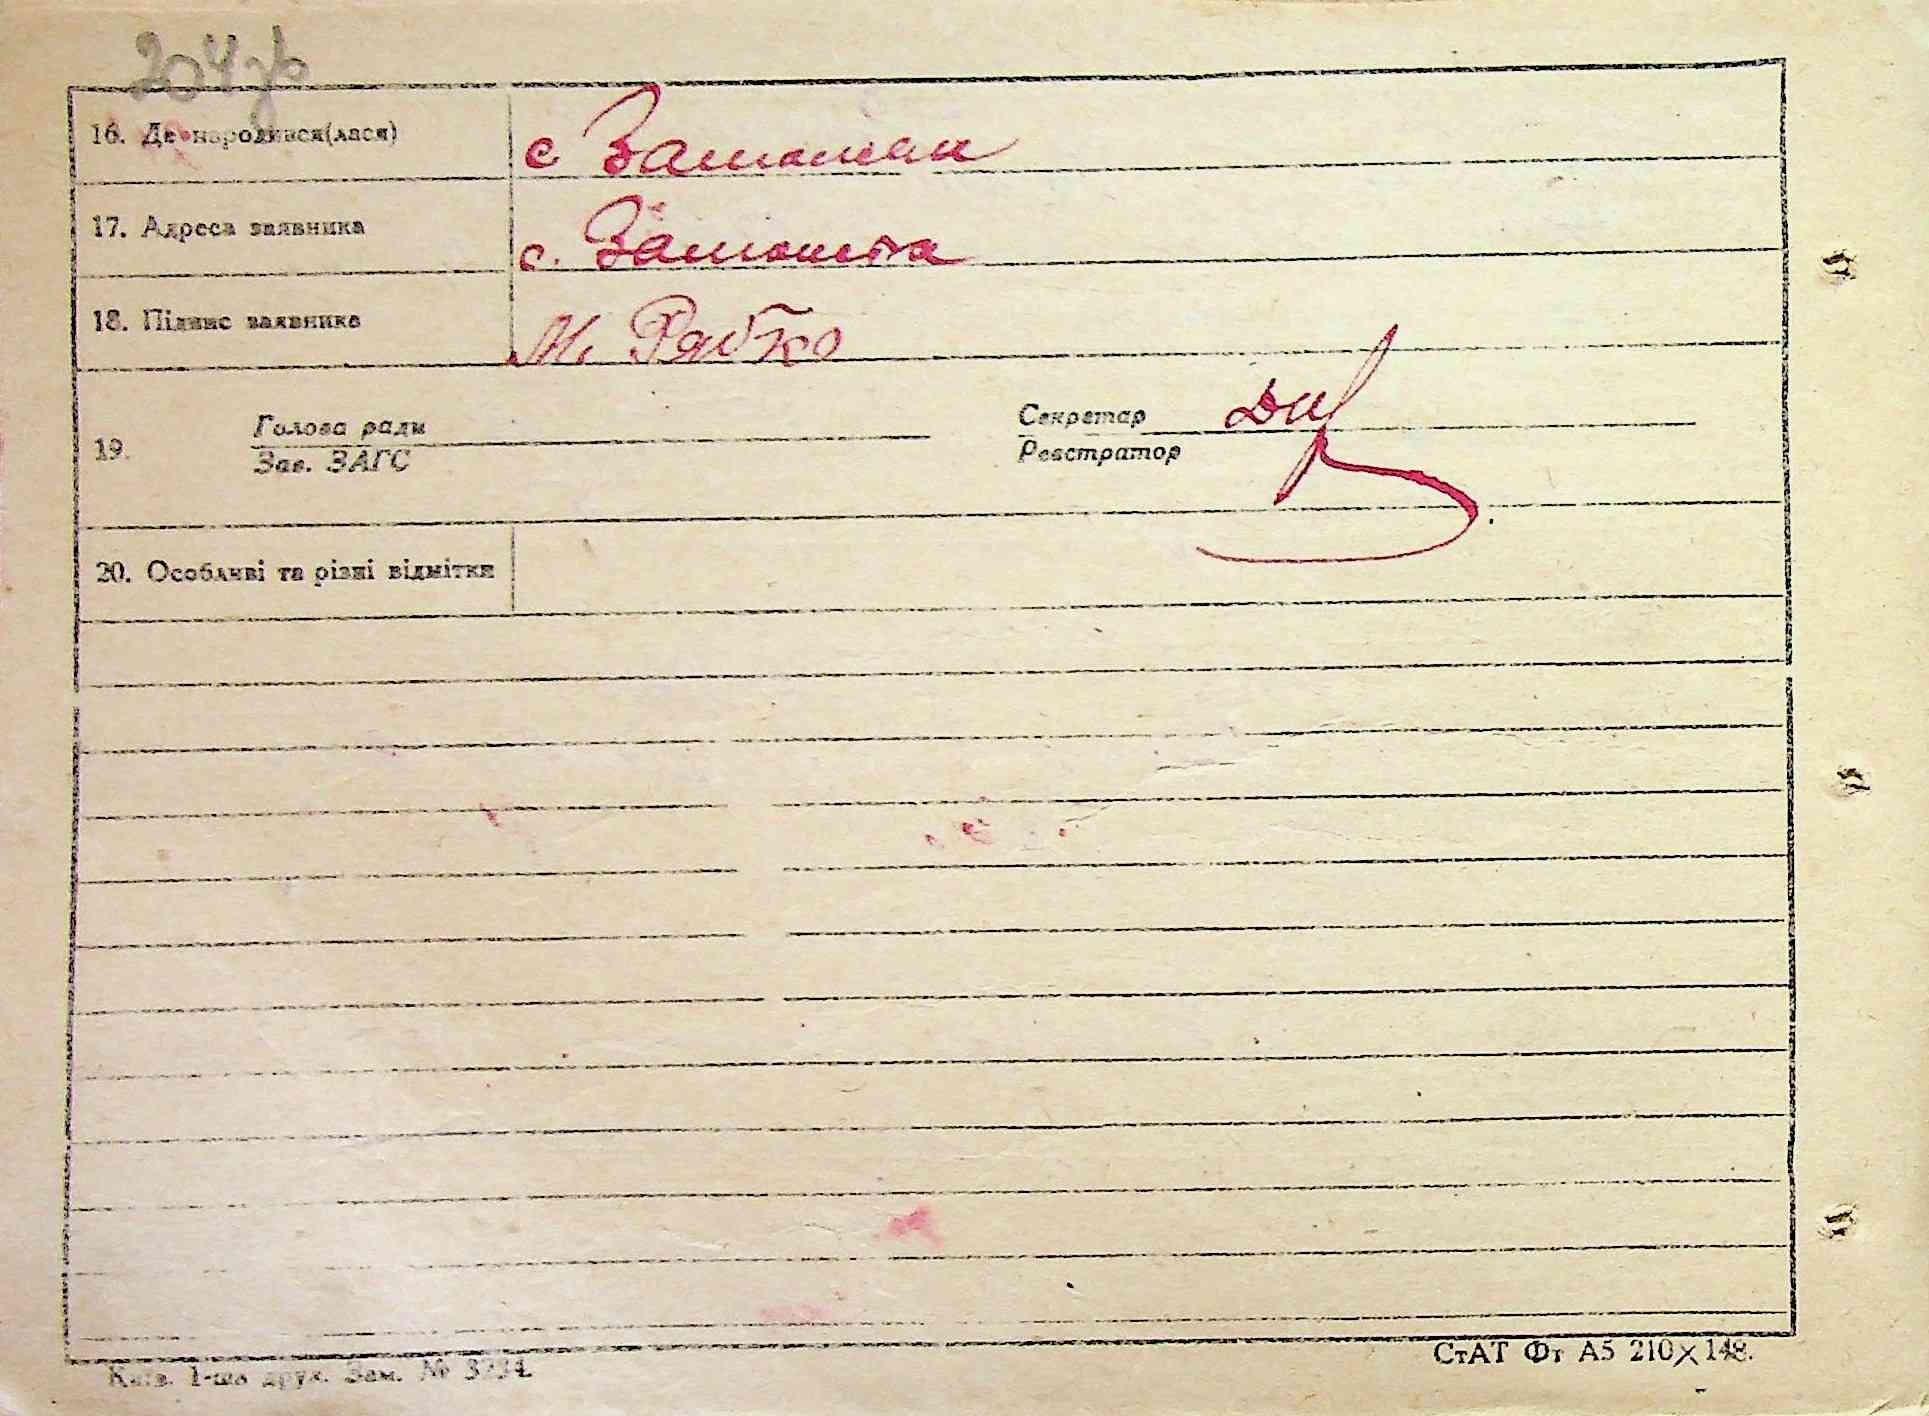 204зв
16. Де народився(лася)
с
17. Адреса заявника
с.
18. Підпис заявника
М. Рябко
19.
Голова ради
Зав. ЗАГС
Секретар
Реєстратор
20. Особливі та різні відмітки
Київ. 1-ша друк. Зам. № 3234.
СтАТ Фт А5 210×148.